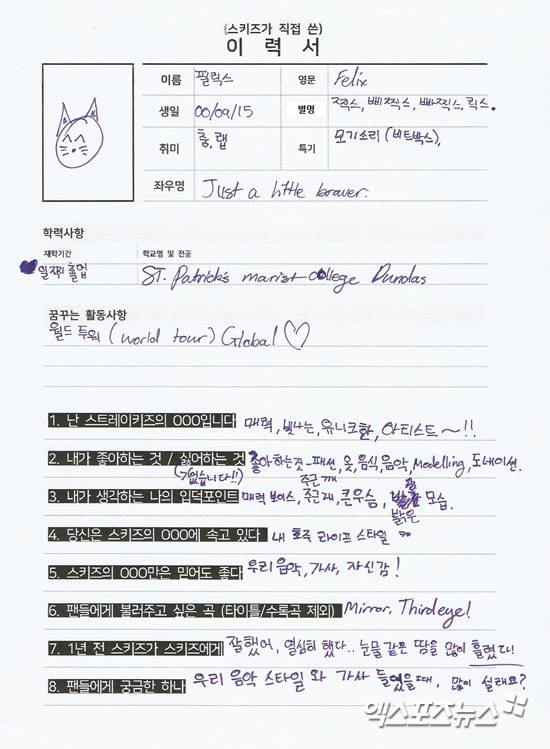 (스키즈가 직접 쓴)
이 력 서
이름 필릭스 영문 Felix
생일 00/09/15 별명 쪽릭스, 삐찍스, 빠찍스, 릭스.
취미 춤, 랩 특기 모기소리 (비트박스),
좌우명 Just a little braver.
학력사항
재학기간 학교명 및 전공
일찍 졸업 ST. Patrick's marist college Dundas
꿈꾸는 활동사항
월드 투워 (world tour) Global ♡
1. 난 스트레이키즈의 OOO입니다 매력, 빛나는, 유니크한, 아티스트~!!
2. 내가 좋아하는 것 / 싫어하는 것 좋아하는것-패션, 옷, 음식, 음악, Modelling, 도네이션.
(없습니다!!)
3. 내가 생각하는 나의 입덕포인트 매력 보이스, 주근깨, 큰웃음, 밝은 모습.
4. 당신은 스키즈의 OOO에 속고 있다 내 호주 라이프 스타일
5. 스키즈의 OOO만은 믿어도 좋다 우리음악, 가사, 자신감!
6. 팬들에게 불러주고 싶은 곡 (타이틀/수록곡 제외) Mirror, Third eye!
7. 1년 전 스키즈가 스키즈에게 잘했어, 열심히 했다.. 눈물 같은 땀을 많이 흘렸다!
8. 팬들에게 궁금한 하나 우리 음악 스타일 와 가사 들었을때, 많이 설래요?
엑스포츠뉴스